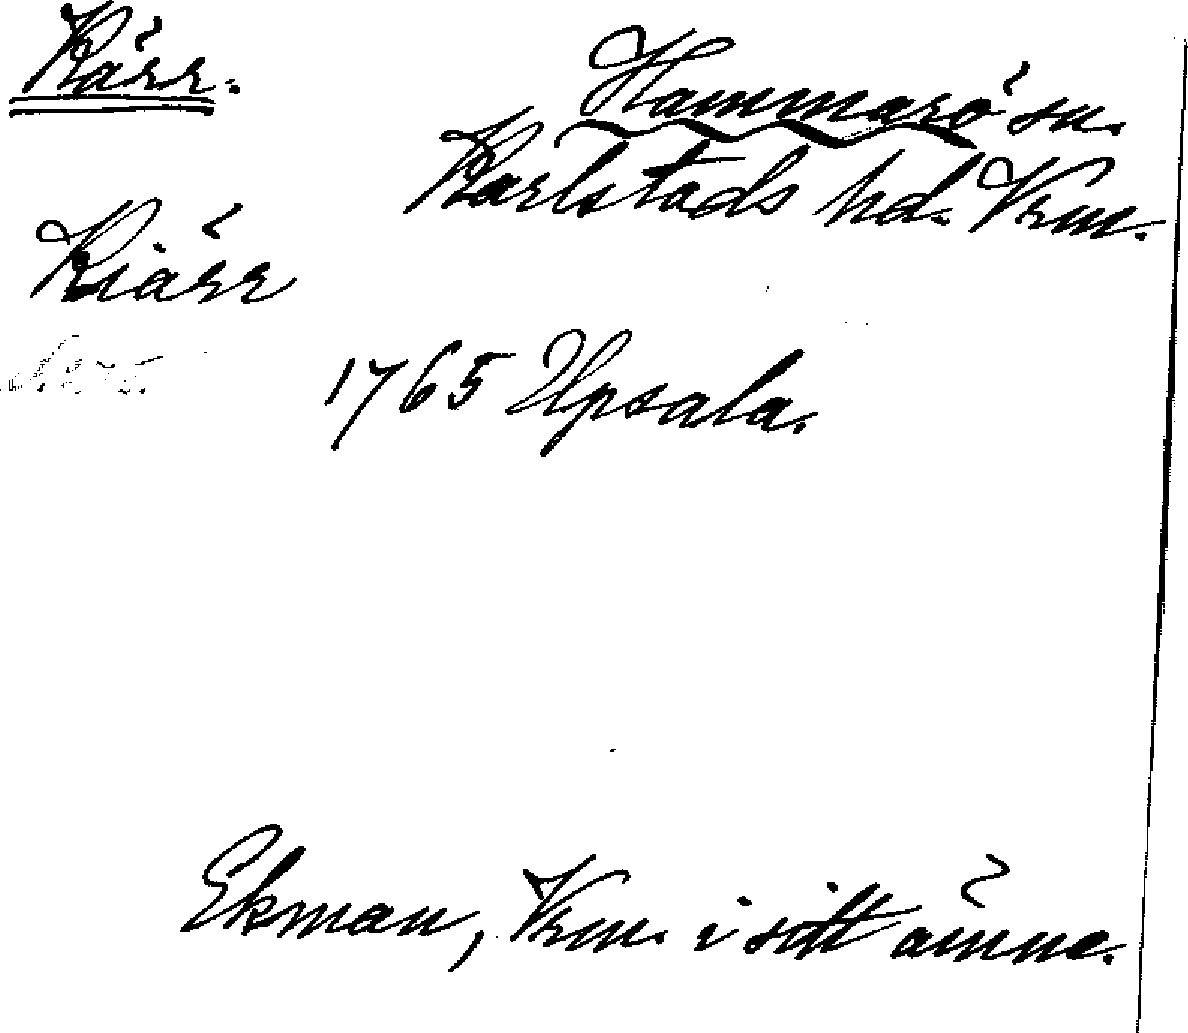 Kärr.
Hammarö sn.
Karlstads hd. Vrm.
Kiärr
1765 Upsala.
Ekman, Vrm. i sitt ämne.